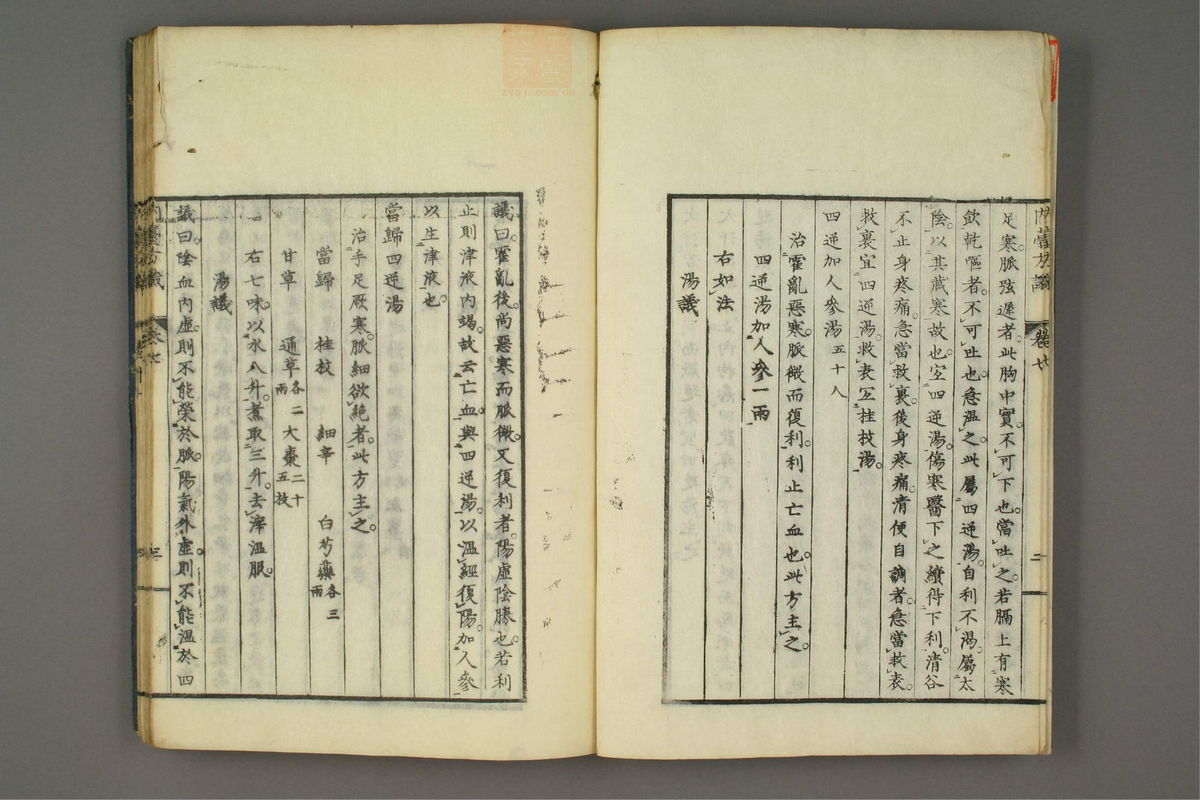 足寒。脈弦遲者。此胸中實。不可下也。當吐之。若膈上有寒
飲乾嘔者。不可吐也。急溫之。此屬四逆湯。自利不渴屬太
陰。以其臟寒故也。宜四逆湯傷寒醫下之續得下利清谷
不止身疼痛。急當救裏後身疼痛清便自調者。急當救表。
救裏宜四逆湯。救表宜桂枝湯。
四逆加人參湯五十八
治霍亂惡寒。脈微而復利。利止亡血也。此方主之。
四逆湯加人參一兩
右如法
湯議
卷七
二
議曰。霍亂後。尚惡寒而脈微。又復利者。陽虛陰勝也。若利
止則津液內竭。故云亡血。與四逆湯。以溫經復陽。加人參
以生津液也。
當歸四逆湯
治手足厥寒。脈細欲絕者。此方主之。
當歸 桂枝 細辛 白芍藥各三兩
甘草 通草各二兩 大棗二十五枚
右七味。以水八升。煮取三升。去滓溫服。
湯議
議曰陰血內虛。則不能榮於脈。陽氣外虛。則不能溫於四